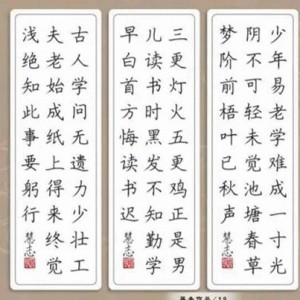 少年易老学难成一寸光
阴不可轻未觉池塘春草
梦阶前梧叶已秋声
三更灯火五更鸡正是男
儿读书时黑发不知勤学
早白首方悔读书迟
古人学问无遗力少壮工
夫老始成纸上得来终觉
浅绝知此事要躬行